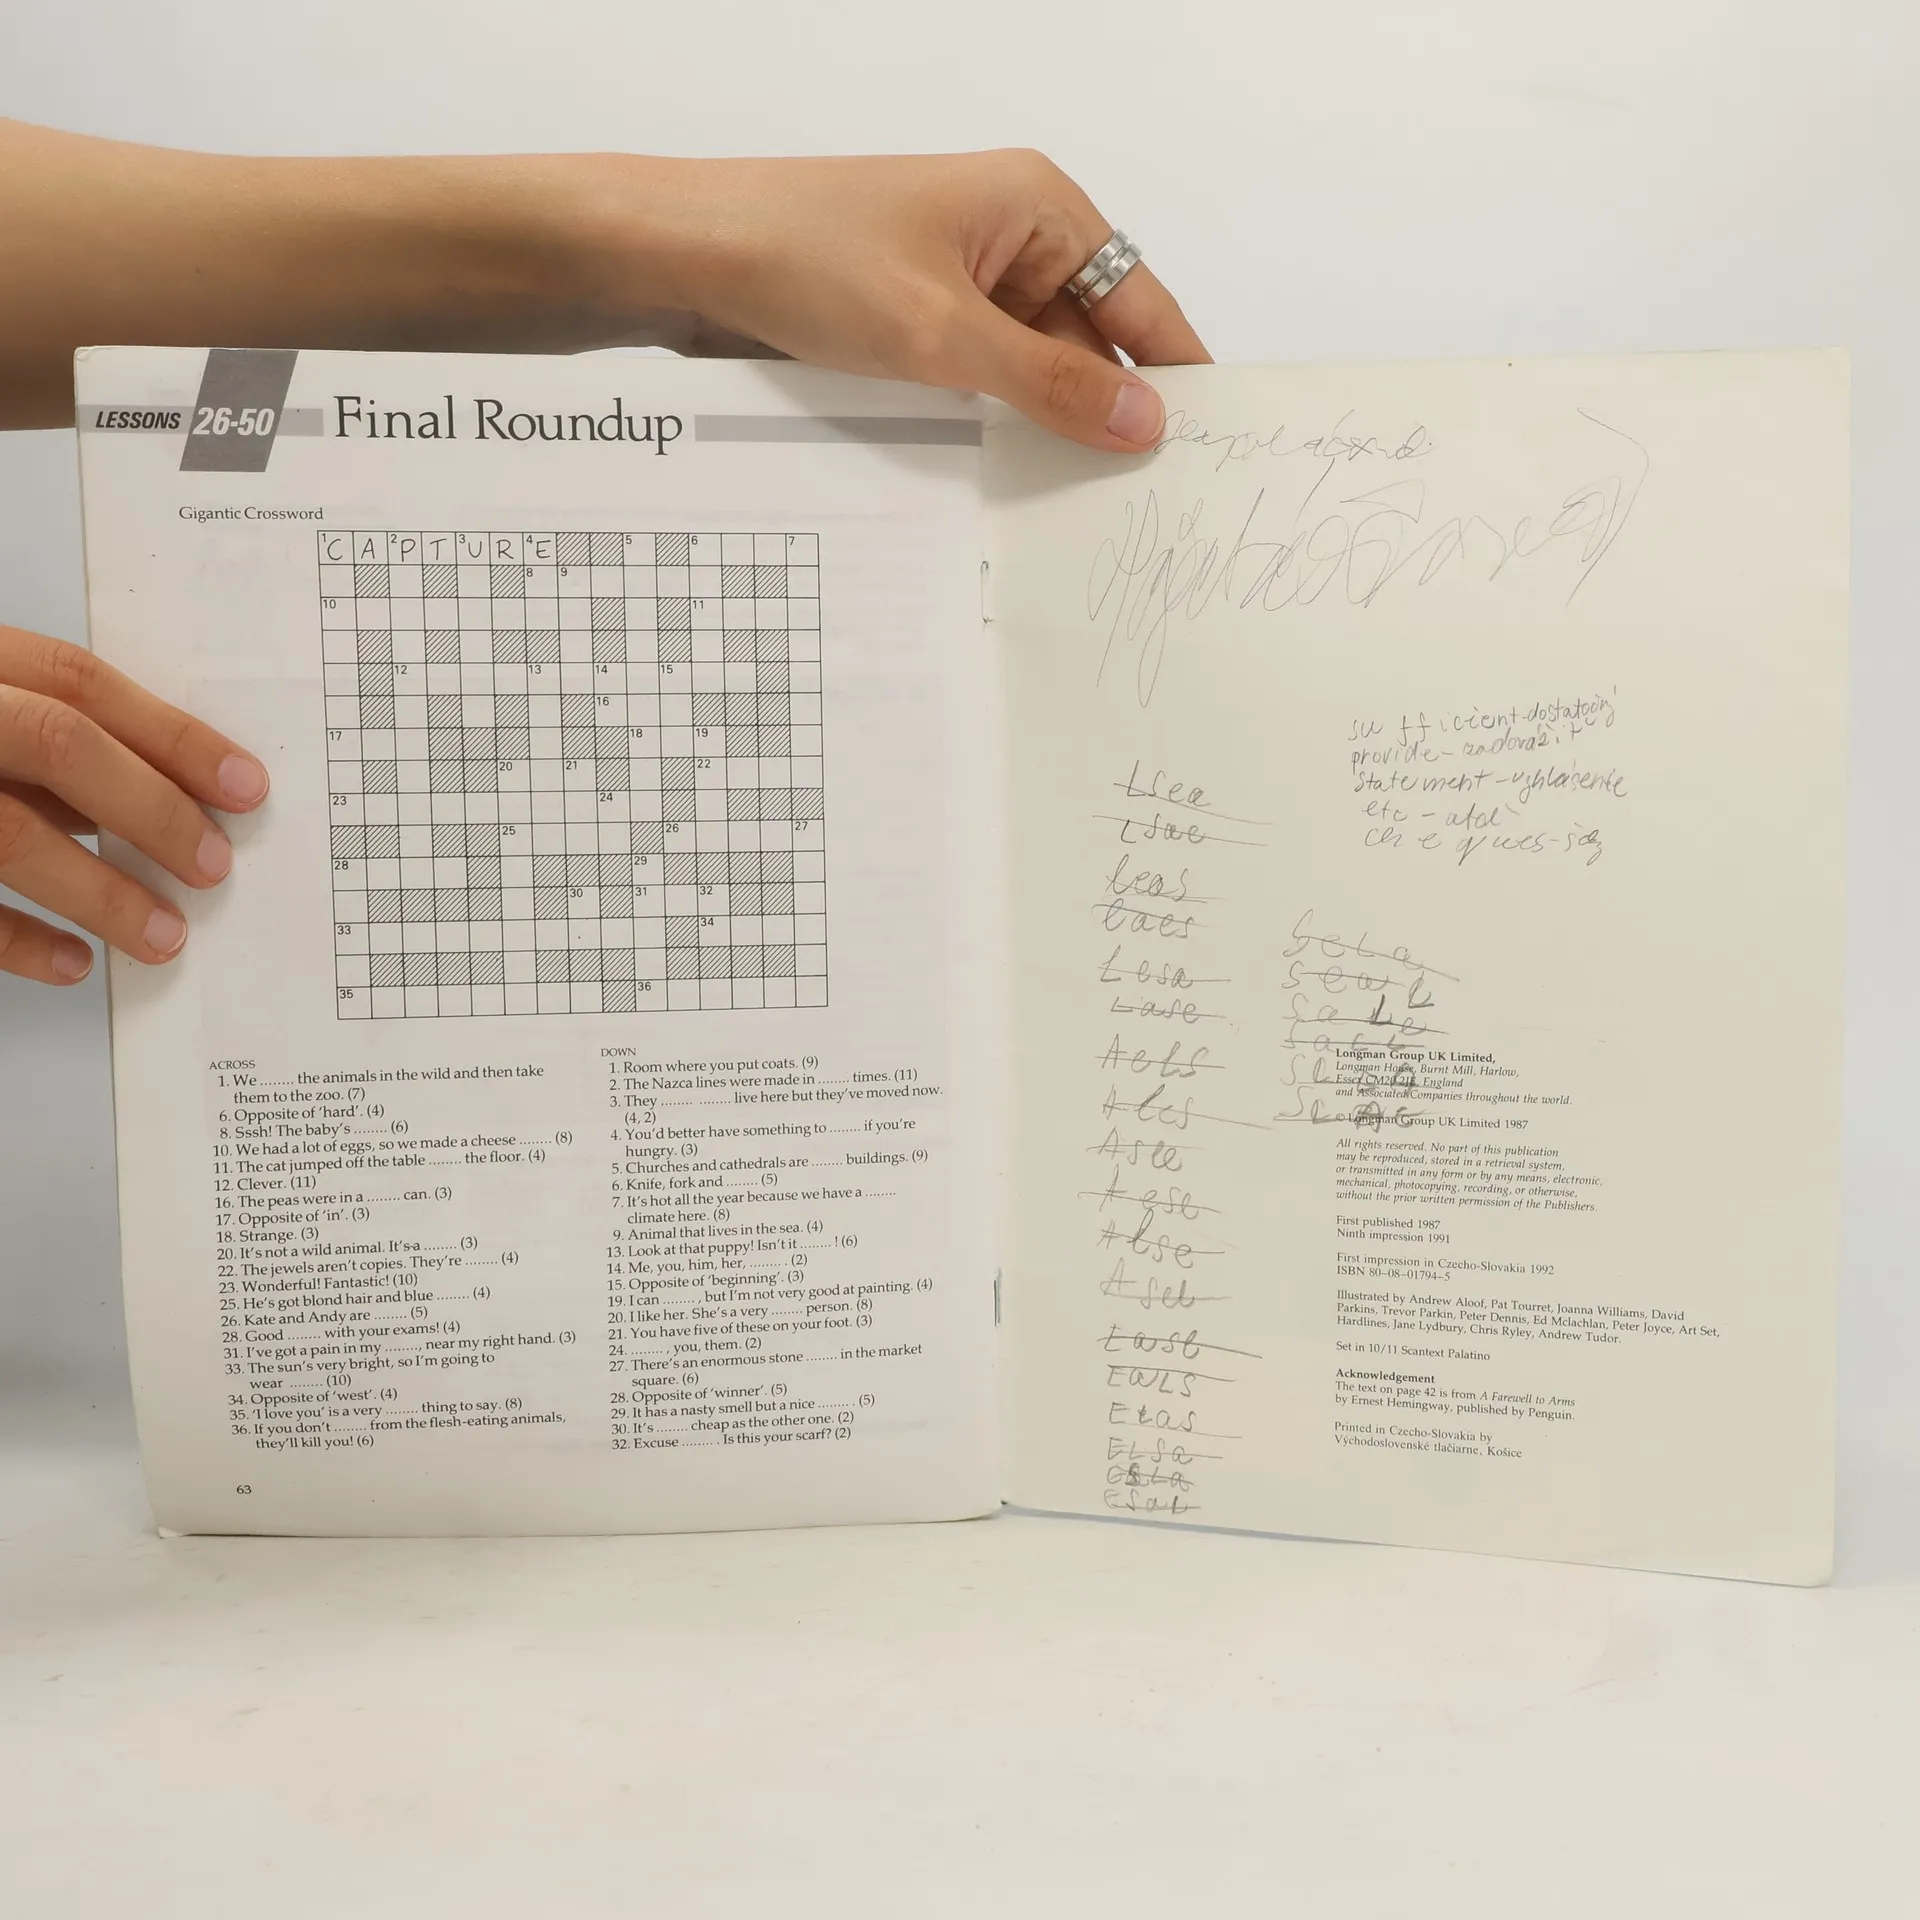 LESSONS 26-50 Final Roundup
Gigantic Crossword
1 C A 2 P T 3 U R 4 E 5 6 7
8 9
10 11
12 13 14 15
16
17 18 19
20 21 22
23 24
25 26 27
28 29
30 31 32
33 34
35 36
ACROSS
1. We ........ the animals in the wild and then take
them to the zoo. (7)
6. Opposite of 'hard'. (4)
8. Sssh! The baby's ........ (6)
10. We had a lot of eggs, so we made a cheese ........ (8)
11. The cat jumped off the table ........ the floor. (4)
12. Clever. (11)
16. The peas were in a ........ can. (3)
17. Opposite of 'in'. (3)
18. Strange. (3)
20. It's not a wild animal. It's a ........ (3)
22. The jewels aren't copies. They're ........ (4)
23. Wonderful! Fantastic! (10)
25. He's got blond hair and blue ........ (4)
26. Kate and Andy are ........ (5)
28. Good ........ with your exams! (4)
31. I've got a pain in my ........, near my right hand. (3)
33. The sun's very bright, so I'm going to
wear ........ (10)
34. Opposite of 'west'. (4)
35. 'I love you' is a very ........ thing to say. (8)
36. If you don't ........ from the flesh-eating animals,
they'll kill you! (6)
63
DOWN
1. Room where you put coats. (9)
2. The Nazca lines were made in ........ times. (11)
3. They ........ ........ live here but they've moved now.
(4, 2)
4. You'd better have something to ........ if you're
hungry. (3)
5. Churches and cathedrals are ........ buildings. (9)
6. Knife, fork and ........ (5)
7. It's hot all the year because we have a ........
climate here. (8)
9. Animal that lives in the sea. (4)
13. Look at that puppy! Isn't it ........ ! (6)
14. Me, you, him, her, ........ . (2)
15. Opposite of 'beginning'. (3)
19. I can ........ , but I'm not very good at painting. (4)
20. I like her. She's a very ........ person. (8)
21. You have five of these on your foot. (3)
24. ........ , you, them. (2)
27. There's an enormous stone ........ in the market
square. (6)
28. Opposite of 'winner'. (5)
29. It has a nasty smell but a nice ........ . (5)
30. It's ........ cheap as the other one. (2)
32. Excuse ........ . Is this your scarf? (2)
sufficient-dostatočný
provide-zadovážiť
statement-vyhlásenie
etc - atď
Lsea
Lsae
leas
Laes
Lesa
Lase
Aels
Ales
Asle
Aesl
Alse
Asel
East
EaLS
Elas
ELSa
ESLa
ESal
SeLa
Seal
SaLe
Sael
Longman Group UK Limited,
Longman House, Burnt Mill, Harlow,
Essex CM20 2JE, England
and Associated Companies throughout the world.
© Longman Group UK Limited 1987
All rights reserved. No part of this publication
may be reproduced, stored in a retrieval system,
or transmitted in any form or by any means, electronic,
mechanical, photocopying, recording, or otherwise,
without the prior written permission of the Publishers.
First published 1987
Ninth impression 1991
First impression in Czecho-Slovakia 1992
ISBN 80-08-01794-5
Illustrated by Andrew Aloof, Pat Tourret, Joanna Williams, David
Parkins, Trevor Parkin, Peter Dennis, Ed Mclachlan, Peter Joyce, Art Set,
Hardlines, Jane Lydbury, Chris Ryley, Andrew Tudor.
Set in 10/11 Scantext Palatino
Acknowledgement
The text on page 42 is from A Farewell to Arms
by Ernest Hemingway, published by Penguin.
Printed in Czecho-Slovakia by
Východoslovenské tlačiarne, Košice